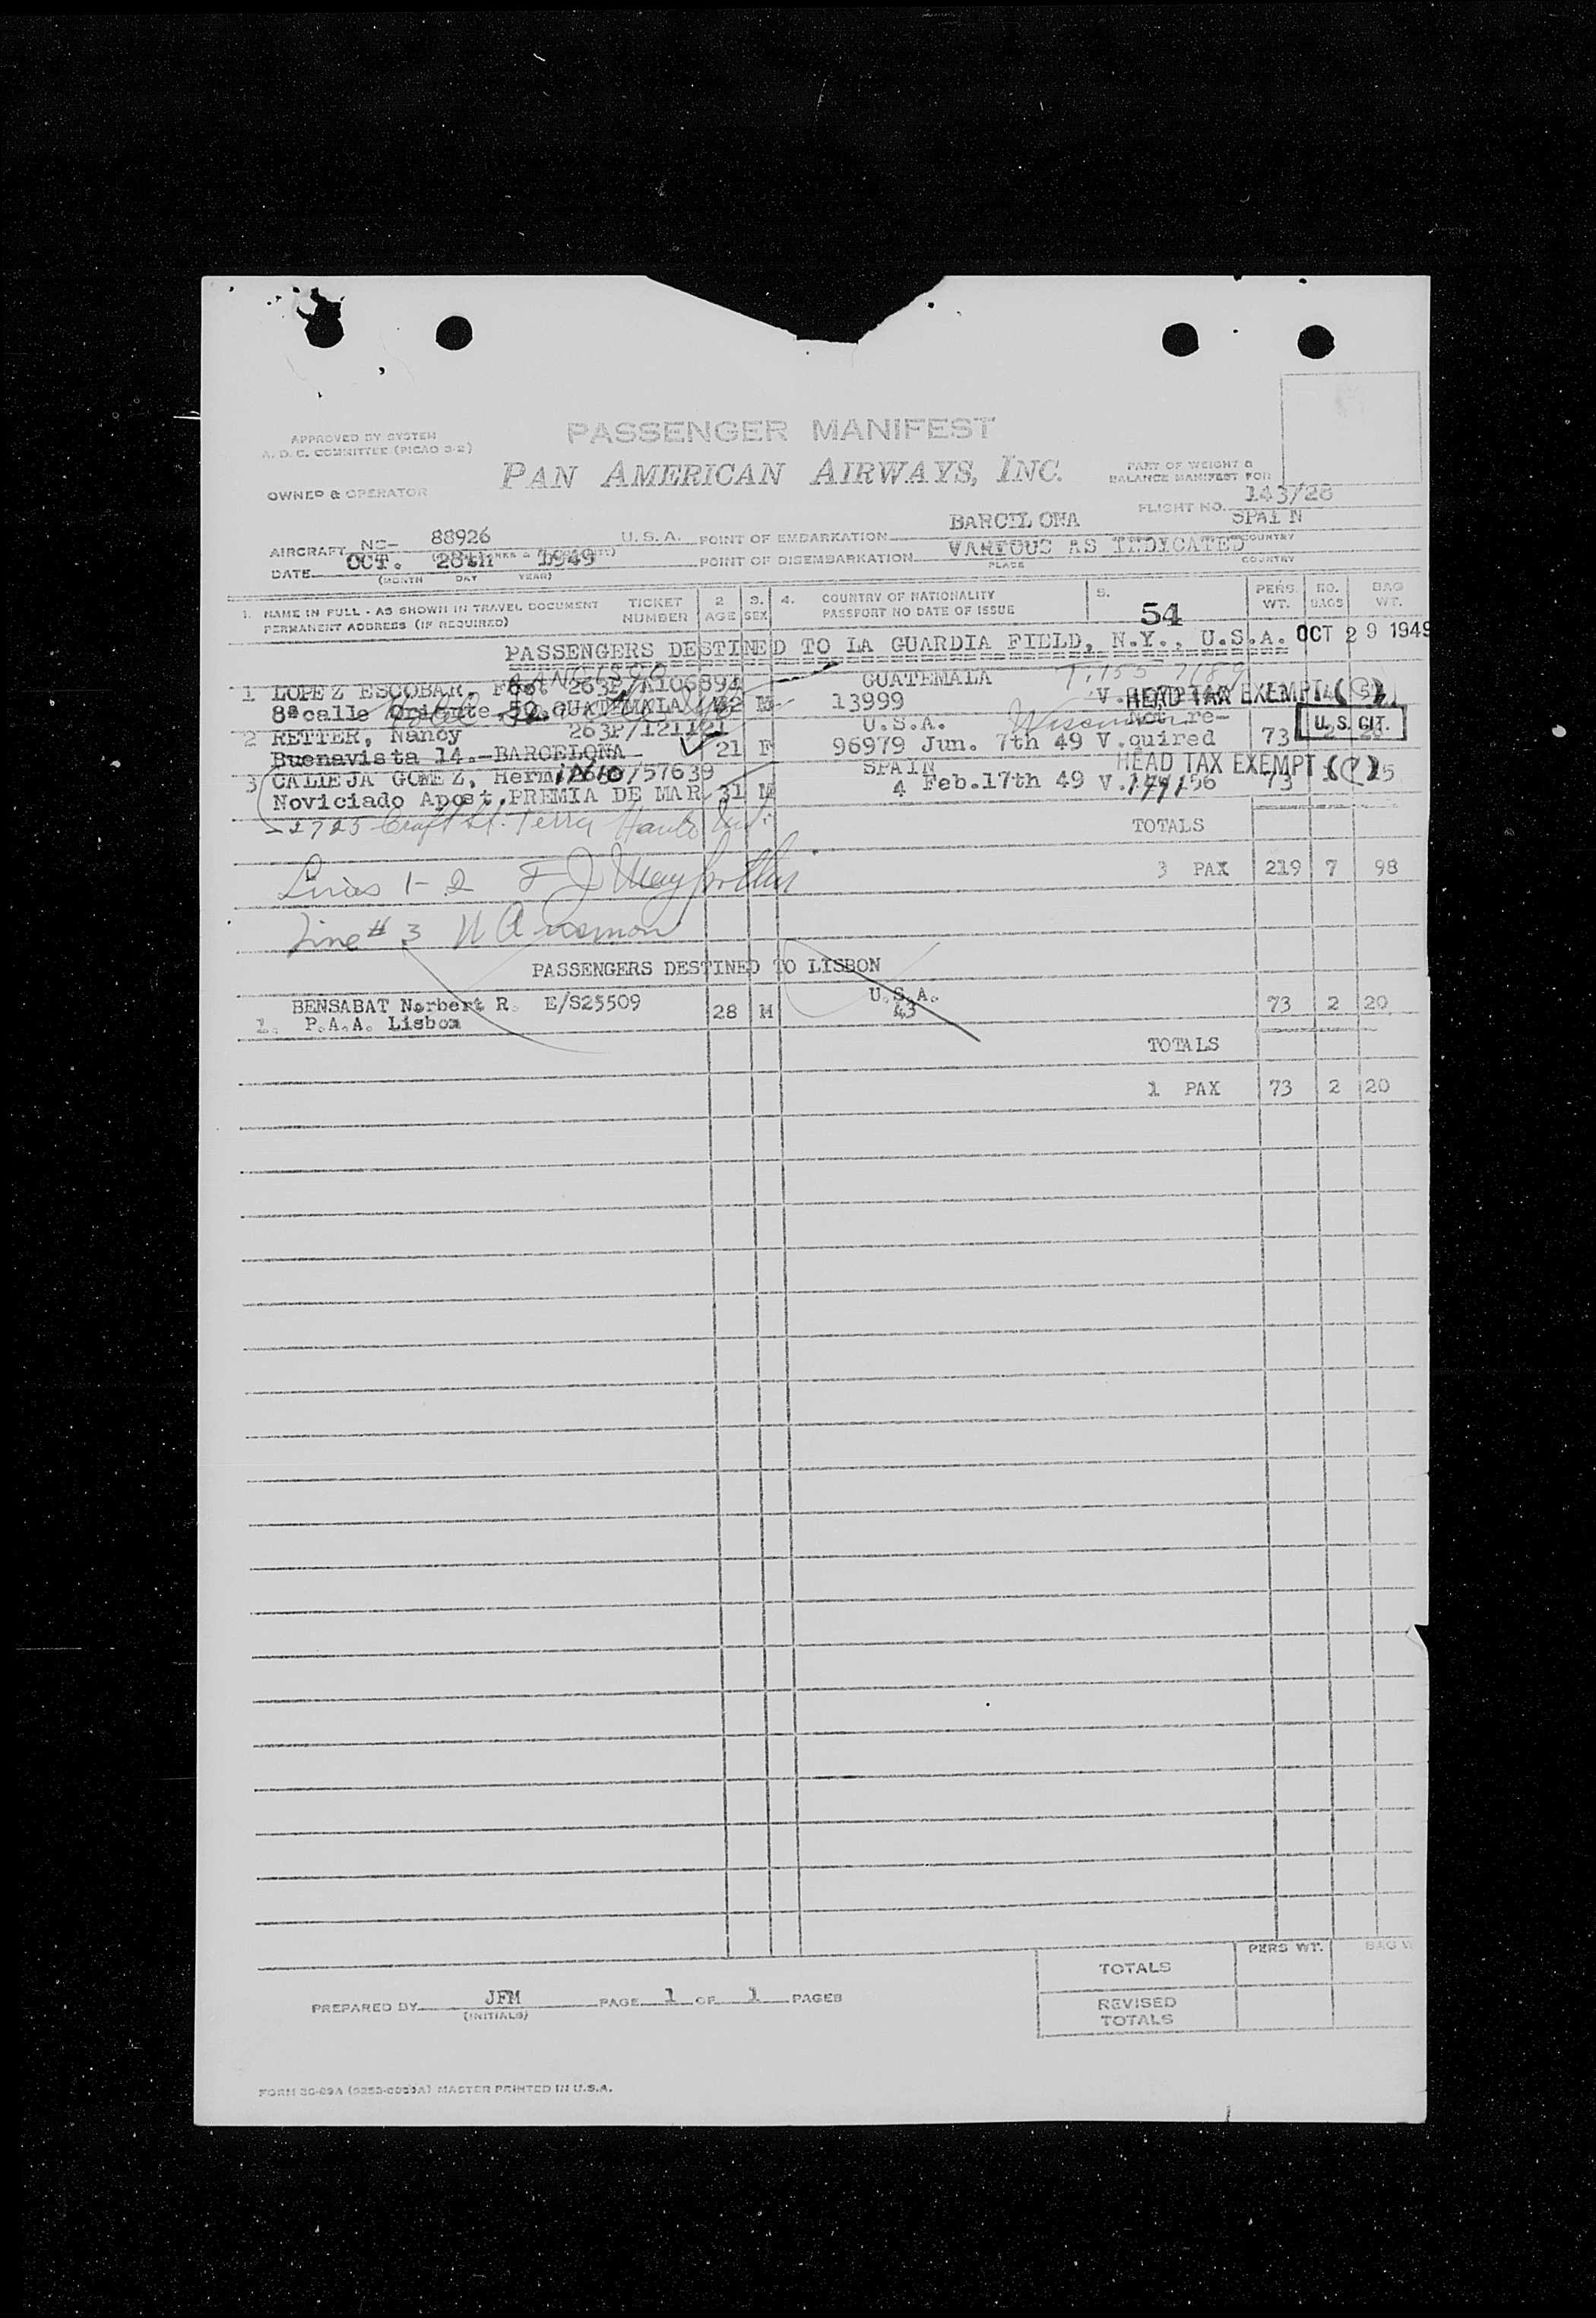 APPROVED BY SYSTEM
A. D. C. COMMITTEE (PICAO 3-2)
PASSENGER MANIFEST
PAN AMERICAN AIRWAYS, INC.
PART OF WEIGHT &
BALANCE MANIFEST FOR
OWNER & OPERATOR
FLIGHT NO. 143/28
AIRCRAFT NC- 88926 U.S.A. POINT OF EMBARKATION BARCELONA SPAIN
COUNTRY
DATE OCT. 28th 1949 POINT OF DISEMBARKATION VARIOUS AS INDICATED
(MONTH DAY YEAR) PLACE COUNTRY
1. NAME IN FULL - AS SHOWN IN TRAVEL DOCUMENT TICKET 2 3. 4. COUNTRY OF NATIONALITY 5. 54 PERS. NO. BAG
PERMANENT ADDRESS (IF REQUIRED) NUMBER AGE SEX PASSPORT NO DATE OF ISSUE WT. BAGS WT.
PASSENGERS DESTINED TO LA GUARDIA FIELD, N.Y., U.S.A. OCT 29 1949
1 LOPEZ ESCOBAR, 263P/A106894 GUATEMALA
8ª calle Oriente 50. GUATEMALA M 13999 V. HEAD TAX EXEMPT
2 RETTER, Nancy 263P/121121 U.S.A. Wisconsin Not re-
Buenavista 14.-BARCELONA 21 F 96979 Jun. 7th 49 V.quired 73 U.S. CIT.
3 CALLEJA GOMEZ, /57639 SPAIN HEAD TAX EXEMPT
Noviciado Apost. PREMIA DE MAR 31 M 4 Feb.17th 49 V. 73
2725 Craft St. Terre Haute Ind.
TOTALS
Lines 1-2 3 PAX 219 7 98
Line # 3
PASSENGERS DESTINED TO LISBON
BENSABAT Norbert R. E/S25509 28 M U.S.A. 73 2 20
1. P.A.A. Lisbon
TOTALS
1 PAX 73 2 20
PERS WT. BAG W
TOTALS
PREPARED BY JFM PAGE 1 OF 1 PAGES
(INITIALS)
REVISED
TOTALS
MASTER PRINTED IN U.S.A.